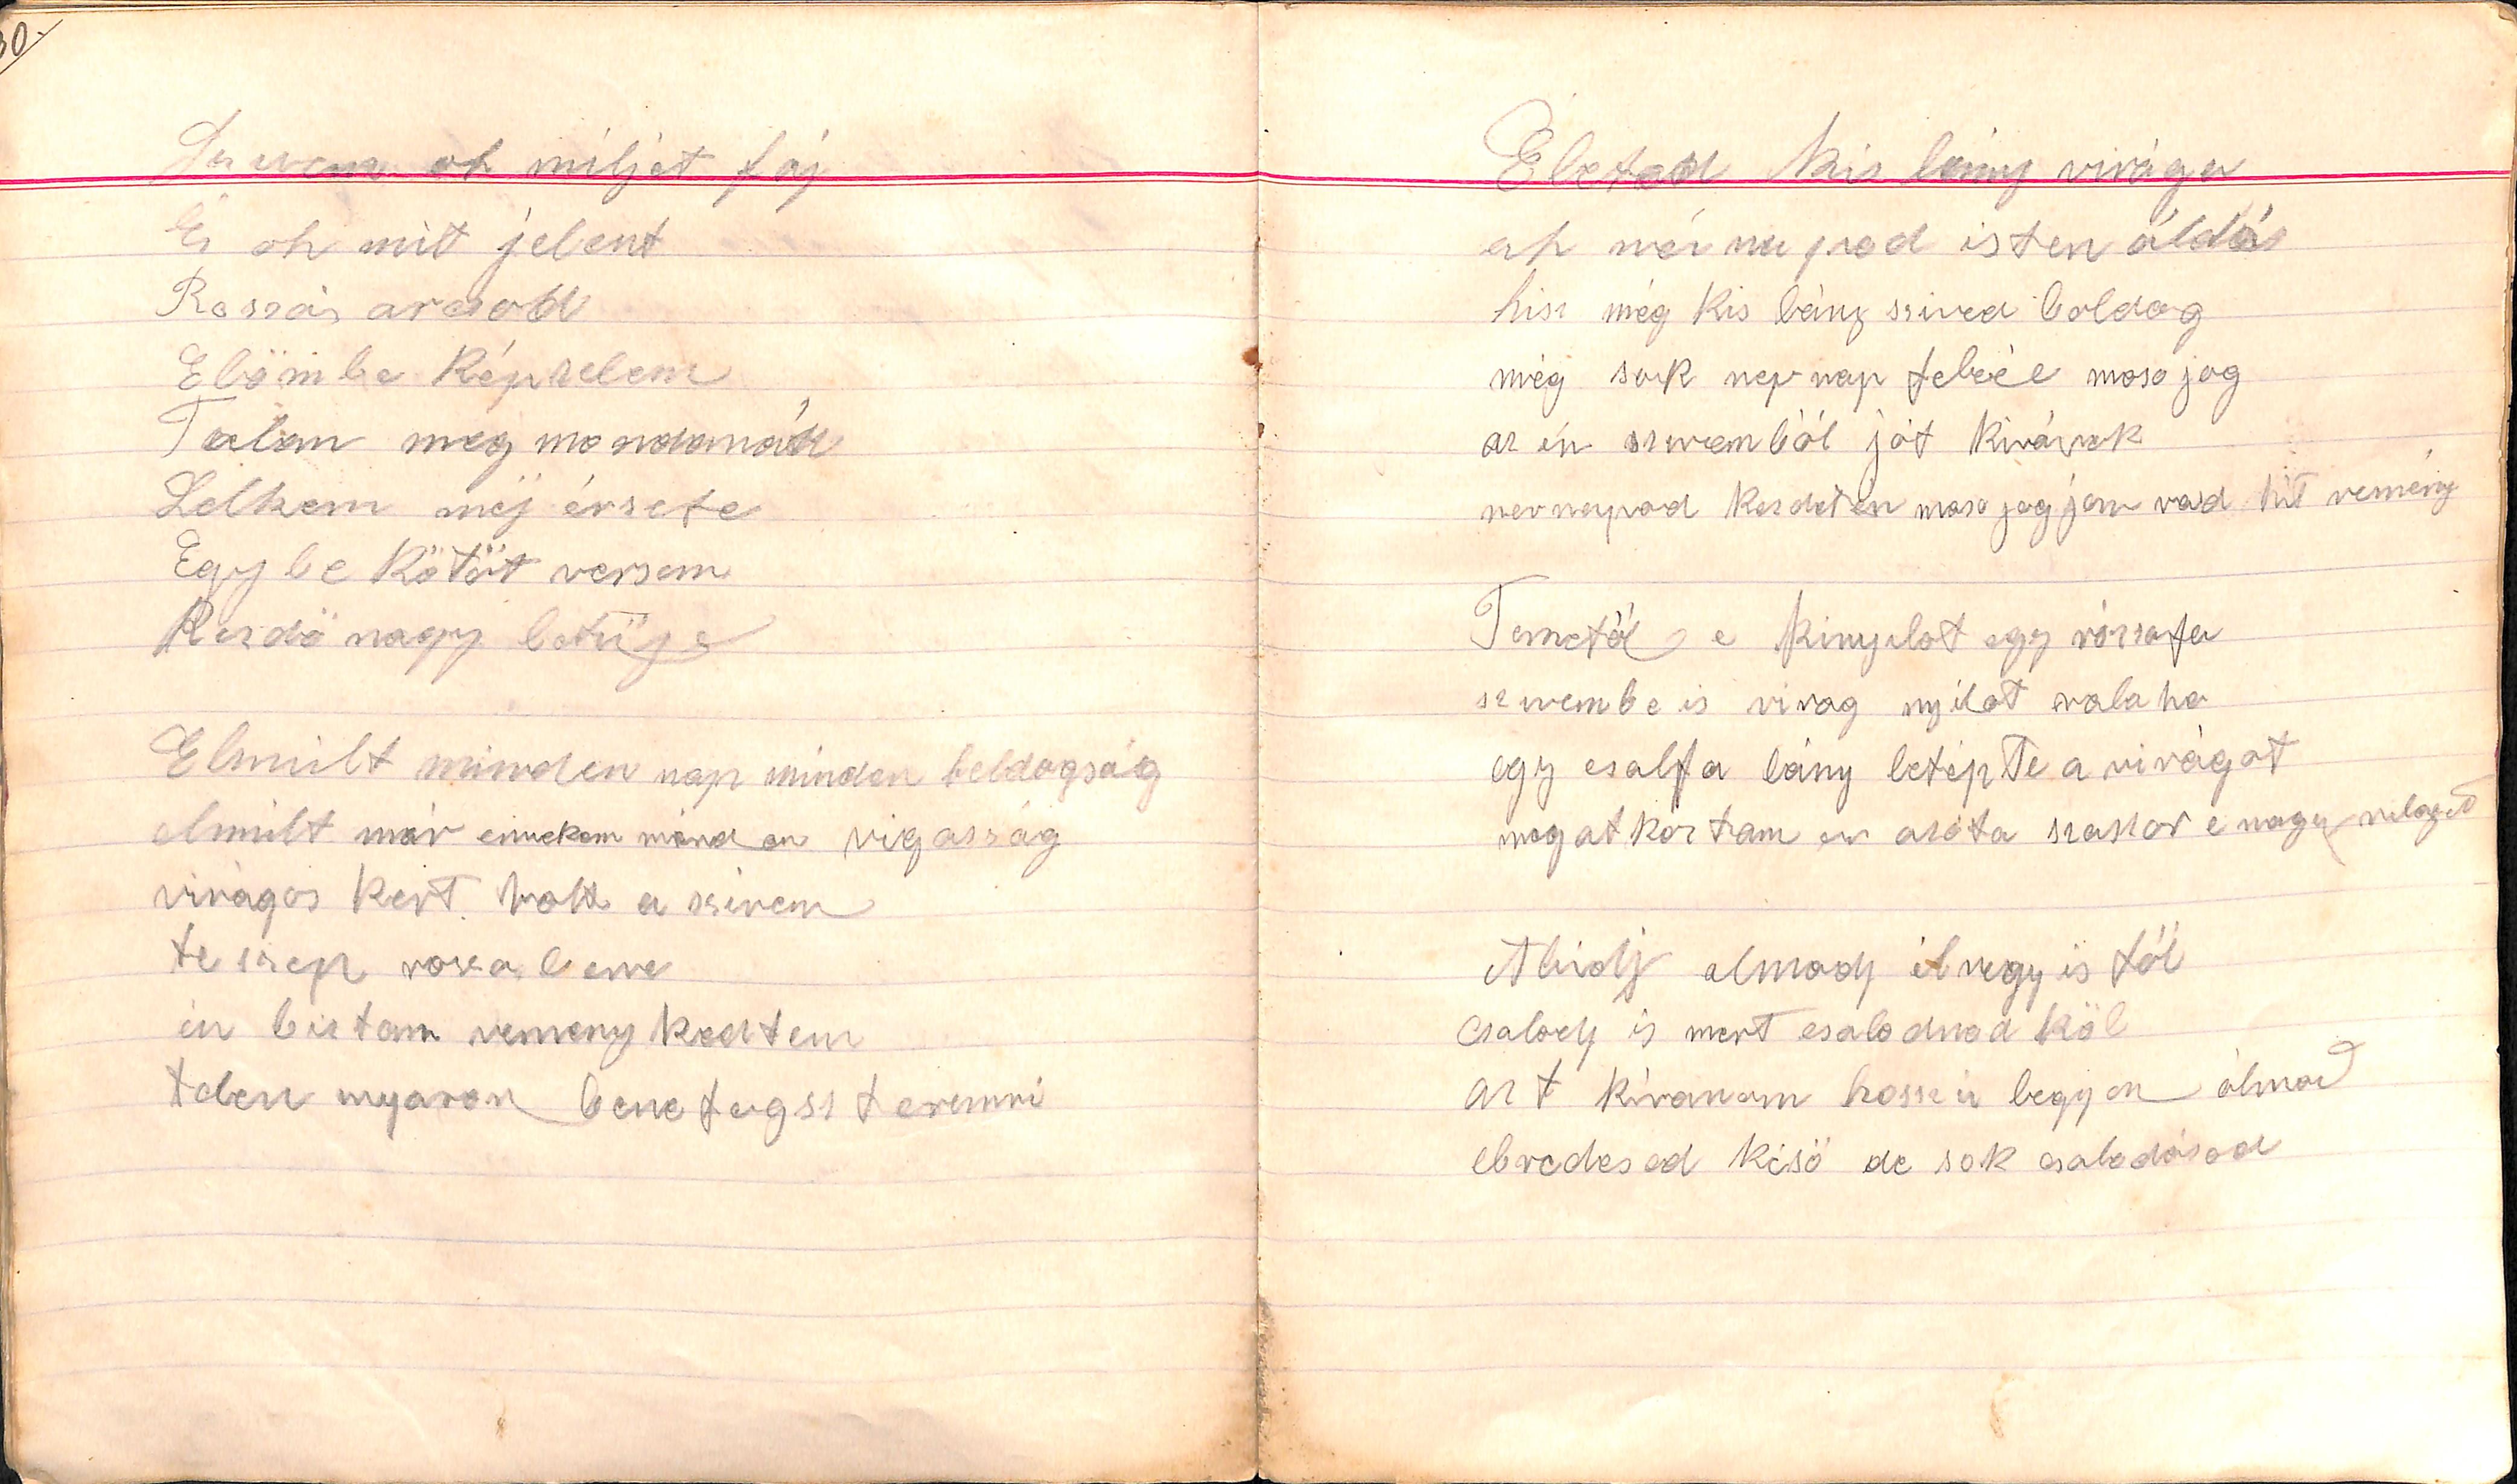 30.
Szivem oh miljet fáj
És oh mit jelent
Roszás arcod
Elömbe Képzelem
Talan meg mondanád
Lelkem méj érzete
Egybe Kötöt versem
Kezdö nagy betüje
Elmúlt minden nap minden boldogság
elmúlt már ennekem minden vigasság
virágos kert volt a szivem
te szep roza benne
én biztam remenykedtem
telen nyaron bene fugsz teremni
Eleted Kis lány virága
ah név napod isten áldás
hisz még Kis lány szived boldog
még sok nev nap feléd mosojog
az én szivemböl jót Kivánok
nevnapod Kezdetén mosojogjon rád hit remény
Temetöl e Kinyilot egy rózsafa
szivembe is virag nyilot valaha
egy csalfa lány letépte a virágot
megatkoztam en azóta e nagy világot
Abidj almody él vegy is föl
csalody is mert csalodnod Köl
azt Kivanom hosszu legyen álmod
ebredesed Késö de sok csalodásod